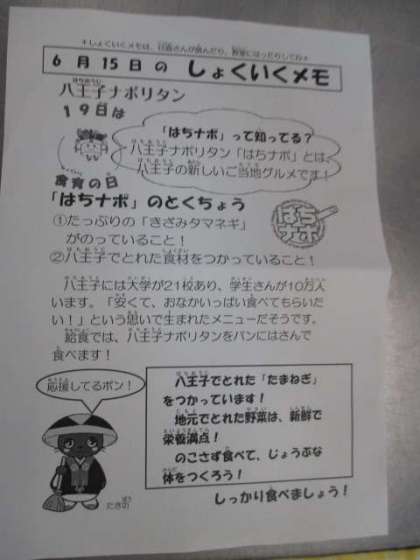 ＊しょくいくメモは、日直さんが読んだり、教室にはったりしてね＊
6月15日の しょくいくメモ
八王子ナポリタン
19日は
食育の日
「はちナポ」って知ってる？
八王子ナポリタン「はちナポ」とは、
八王子の新しいご当地グルメです！
「はちナポ」のとくちょう
はち
ナポ
①たっぷりの「きざみタマネギ」
がのっていること！
②八王子でとれた食材をつかっていること！
八王子には大学が21校あり、学生さんが10万人
います。「安くて、おなかいっぱい食べてもらいた
い！」という思いで生まれたメニューだそうです。
給食では、八王子ナポリタンをパンにはさんで
食べます！
応援してるポン！
八王子でとれた「たまねぎ」
をつかっています！
地元でとれた野菜は、新鮮で
栄養満点！
のこさず食べて、じょうぶな
体をつくろう！
しっかり食べましょう！